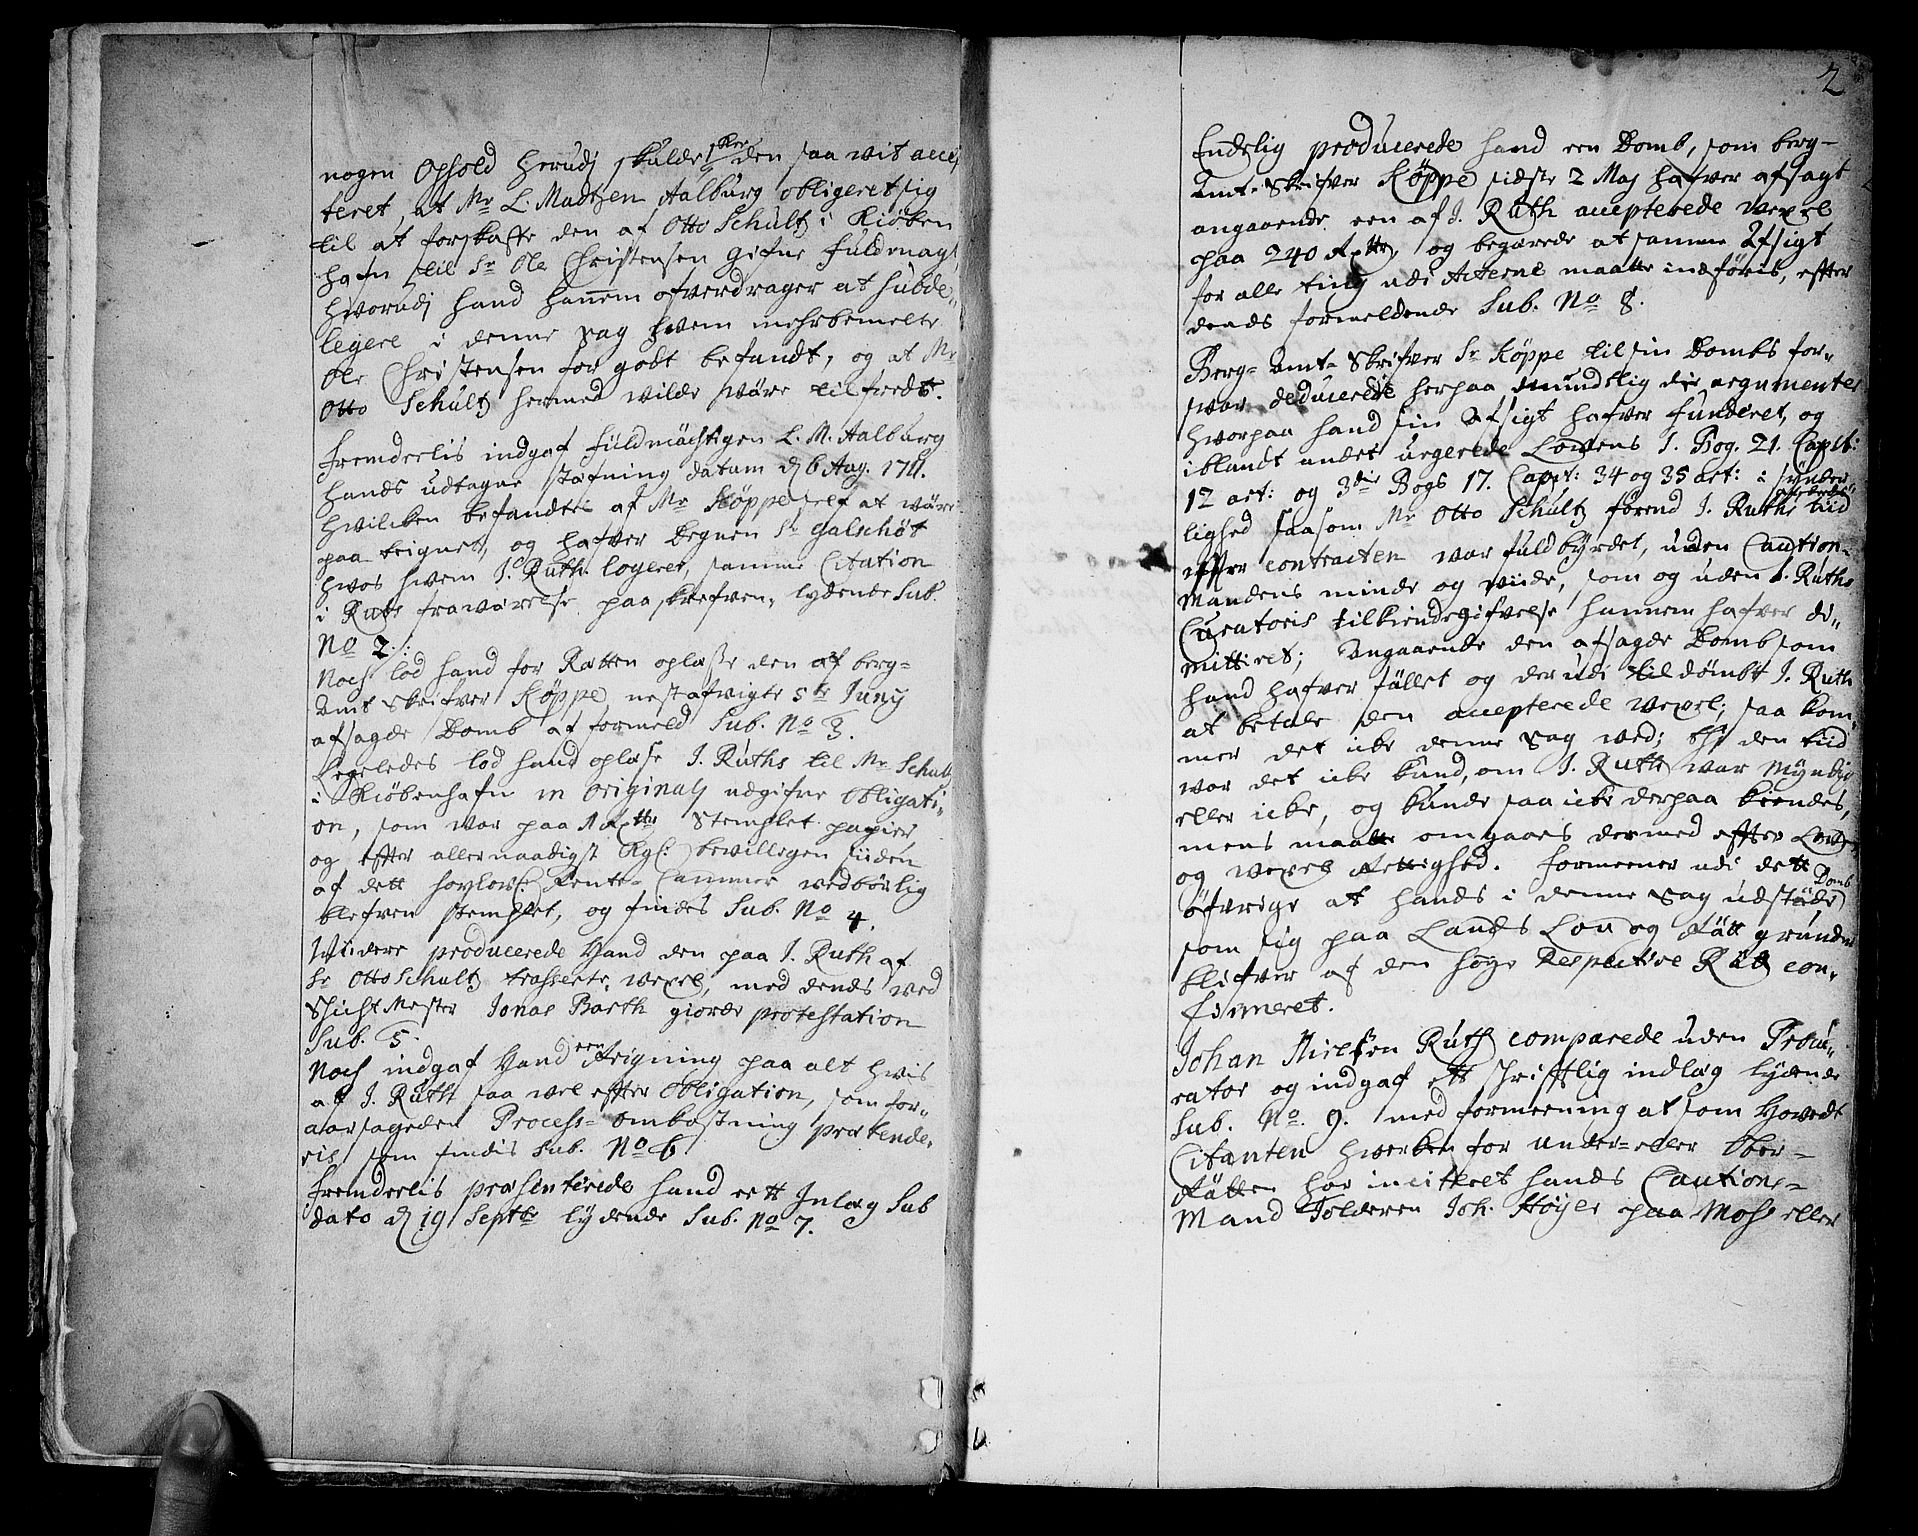 nogen Ophold herudj skulde skee den saa wit accep
teret, at Mr L. Madtzen Aalburg obligeret sig
til at forskaffe den af Otto Schultz i Kiöben
hafn til Sr Ole Christensen gifne fuldmagt,
hvorudj hand hannem ofverdrager at subde„
legere i denne sag hvem mehrbemelte
Ole Christensen for godt befandt, og at Mr
Otto Schultz hermed wilde wäre tilfreds.
Fremdeelis indgaf fuldmächtigen L. M. Aalburg
hands udtagne stefning datum d. 6 Aug. 1711.
hvilcken befandtes af Mr Köppe self at wäre
paa teignet, og hafver Degnen Sr Galschöt
hvos hvem J. Ruth logerer, samme Citation
i Ruts frawärelse paaskrefven, lydende Sub.
No 2.
Noch lod hand for Retten oplæse den af berg-
Amt Skrifver Köppe nestafvigte 5te Junij
afsagde Domb af formeld Sub. No 3.
Ligeledes lod hand oplæse J. Ruths til Mr Schultz
i Kiöbenhafn in Originalj udgifne Obligati„
on, som war paa 1 Rdr Stemplet papiir,
og efter allernaadigst Kgl: bevillegen siiden
af dett høylovl: Rente-Cammer wedbörlig
blefven stemplet, og findes Sub. No 4.
Widere producerede Hand den paa J. Ruth af
Sr Otto Schultz trasserte wexel, med dends wed
Schichtmester Jonas Barth giorde protestation
Sub. 5.
Noch indgaf Hand een Reigning paa alt hvis
af J. Ruth saa wel efter Obligation, som for„
aarsageden Process-omkostning prætende„
ris, som findis Sub. No 6
Fremdeelis præsenterede hand ett Inlæg Sub
dato d. 19 Septbr lydende Sub. No 7.
2
Endelig producerede hand een Domb, som berg-
Amt-Skrifver Köppe sidste 2 Maj hafver afsagt
angaaende een af J. Ruth accepterede Wexel
paa 240 Rdr, og begærede at samme Afsigt
for alle ting udi Acterne maatte indføris, efter
dends formeldende Sub. No 8.
Berg-Amt-Skrifver Sr Köppe til sin Dombs for„
svar deducerede herpaa mundtlig die argumenter
hvorpaa hand sin Afsigt hafver funderet, og
iblandt andet urgerede Lovens 1. Bog. 21. Capit:
12 art: og 3die Bogs 17. Capit: 34 og 35 art: i synder„
lighed saasom Mr Otto Schultz förend J. Ruths tiid
efter contracten war fuldbyrdet, uden Caution-
Mandens minde og wiide, som og uden J. Ruths
Curatoris tilkiendegifvelse hannem hafver di„
mitteret; Angaaende den afsagde Domb som
hand hafver fället og derudi tildömbt J. Ruth
at betale den accepterede wexel; saa kom„
mer det icke denne sag wed; thj den tiid
war det icke kund, om J. Ruth war Myndig
eller icke, og kunde saa icke derpaa kiendes,
mens maatte omgaaes dermed efter Loven
og wexel Rettighed. Formeener udi dett
öfvrige at hands i denne sag udstäde Domb
som sig paa Lands Lov og Rätt grunder
blifver af den høye Respective Rätt con„
firmeret.
Johan Nielsen Ruth comparede uden Procu„
rator og indgaf ett schrifftlig indlæg lydende
Sub. No. 9. med formeening at som Hovedt
Citanten hverken for under-eller Ober-
Rätten har inciteret hands Cautions-
Mand Tolderen Joh. Höyer paa Moss eller